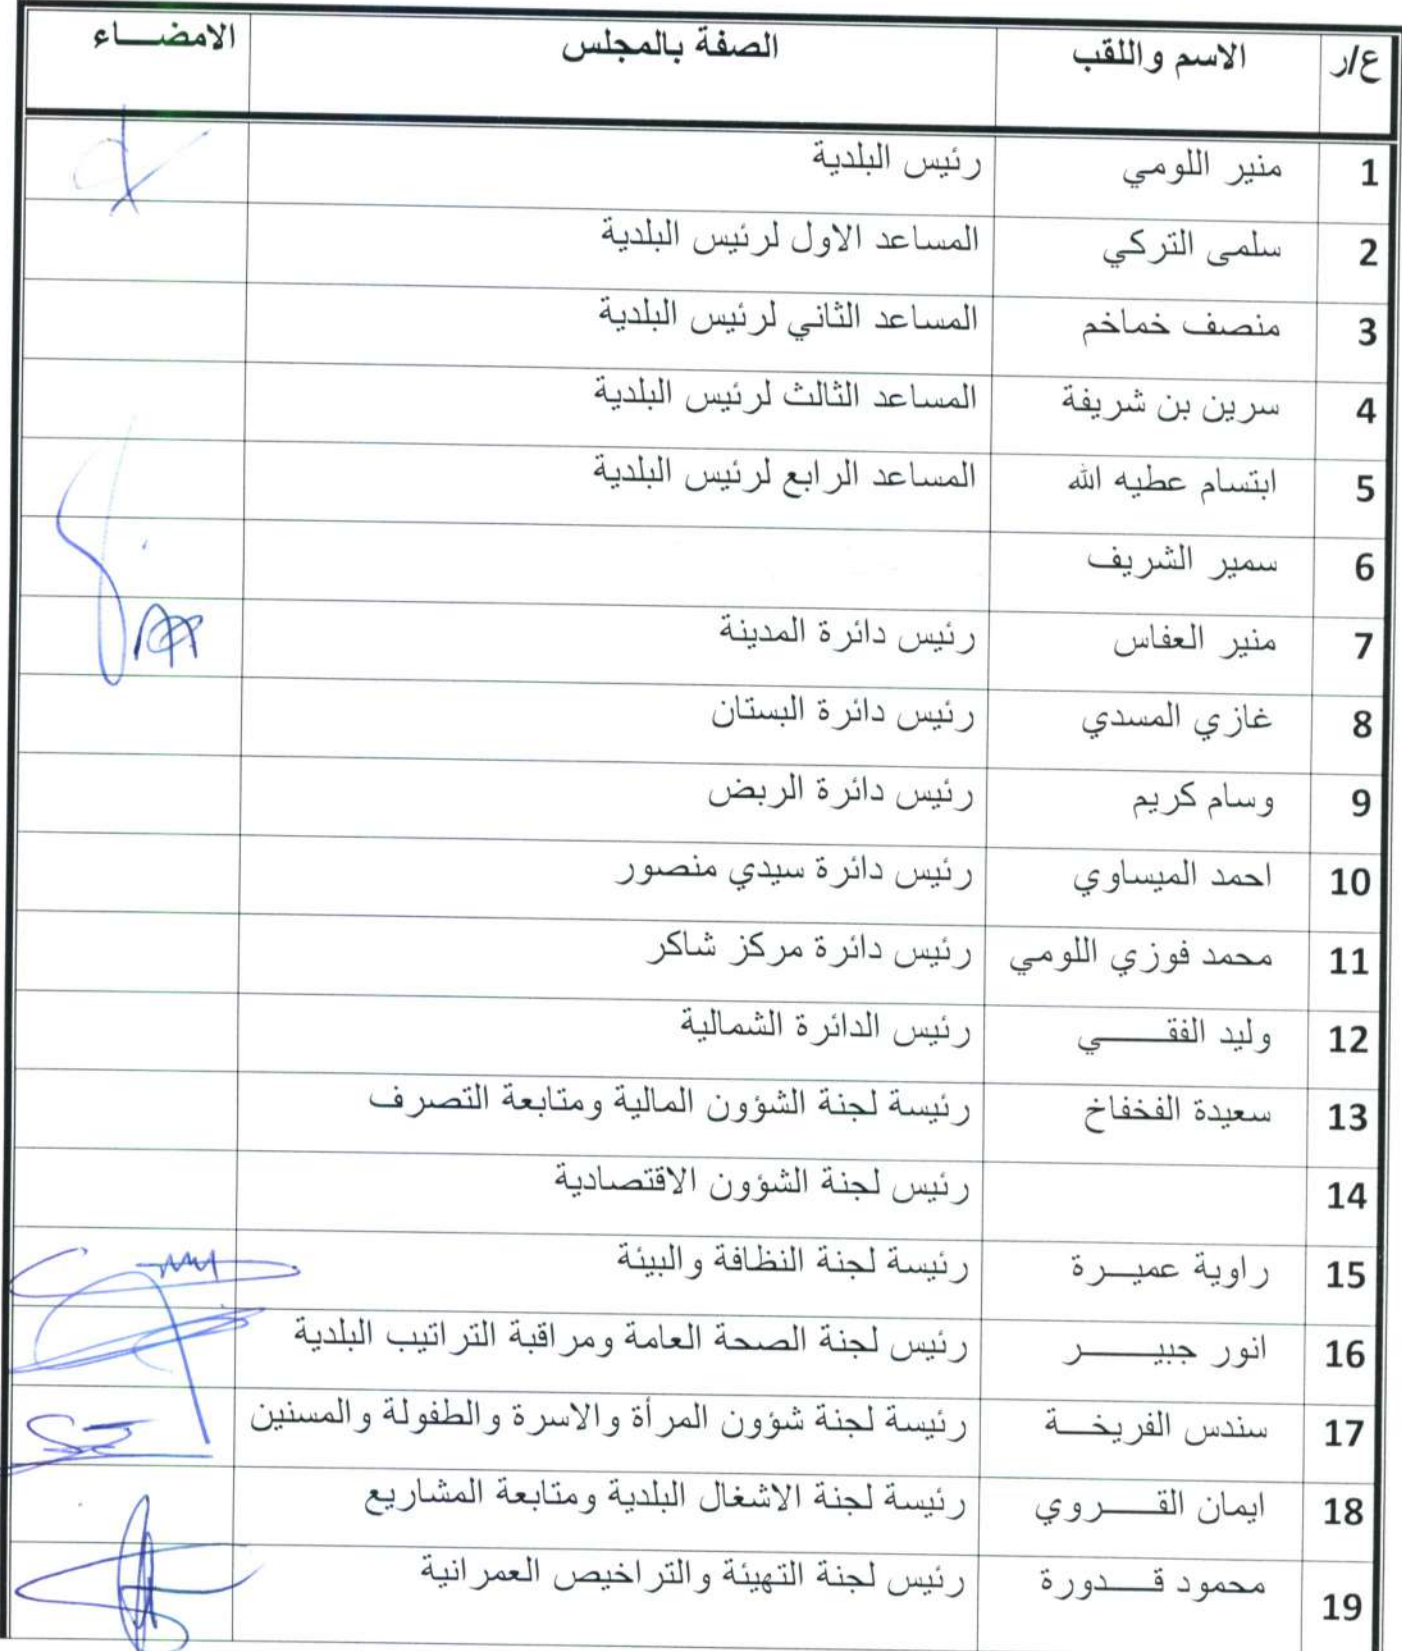 ع/ر الاسم واللقب الصفة بالمجلس الامضـــاء
1 منير اللومي رئيس البلدية
2 سلمى التركي المساعد الاول لرئيس البلدية
3 منصف خماخم المساعد الثاني لرئيس البلدية
4 سرين بن شريفة المساعد الثالث لرئيس البلدية
5 ابتسام عطيه الله المساعد الرابع لرئيس البلدية
6 سمير الشريف
7 منير العفاس رئيس دائرة المدينة
8 غازي المسدي رئيس دائرة البستان
9 وسام كريم رئيس دائرة الربض
10 احمد الميساوي رئيس دائرة سيدي منصور
11 محمد فوزي اللومي رئيس دائرة مركز شاكر
12 وليد الفقـــــي رئيس الدائرة الشمالية
13 سعيدة الفخفاخ رئيسة لجنة الشؤون المالية ومتابعة التصرف
14 رئيس لجنة الشؤون الاقتصادية
15 راوية عميـــرة رئيسة لجنة النظافة والبيئة
16 انور جبيـــــر رئيس لجنة الصحة العامة ومراقبة التراتيب البلدية
17 سندس الفريخـــة رئيسة لجنة شؤون المرأة والاسرة والطفولة والمسنين
18 ايمان القـــــروي رئيسة لجنة الاشغال البلدية ومتابعة المشاريع
19 محمود قـــدورة رئيس لجنة التهيئة والتراخيص العمرانية